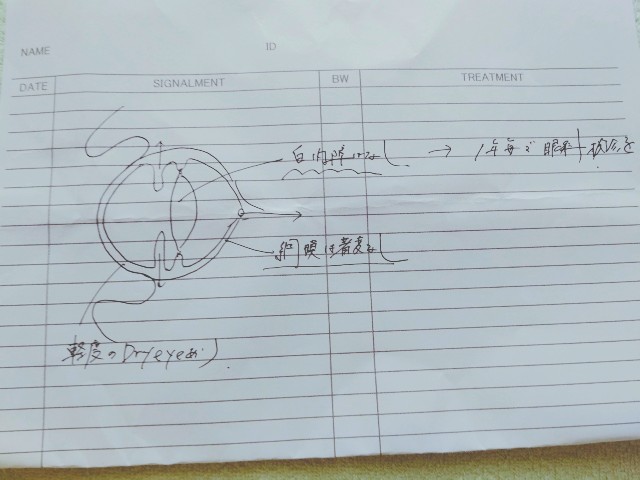 NAME ID
DATE SIGNALMENT BW TREATMENT
白内障はなし → 1年毎で眼科検診を
網膜は著変なし
軽度のDry eyeあり